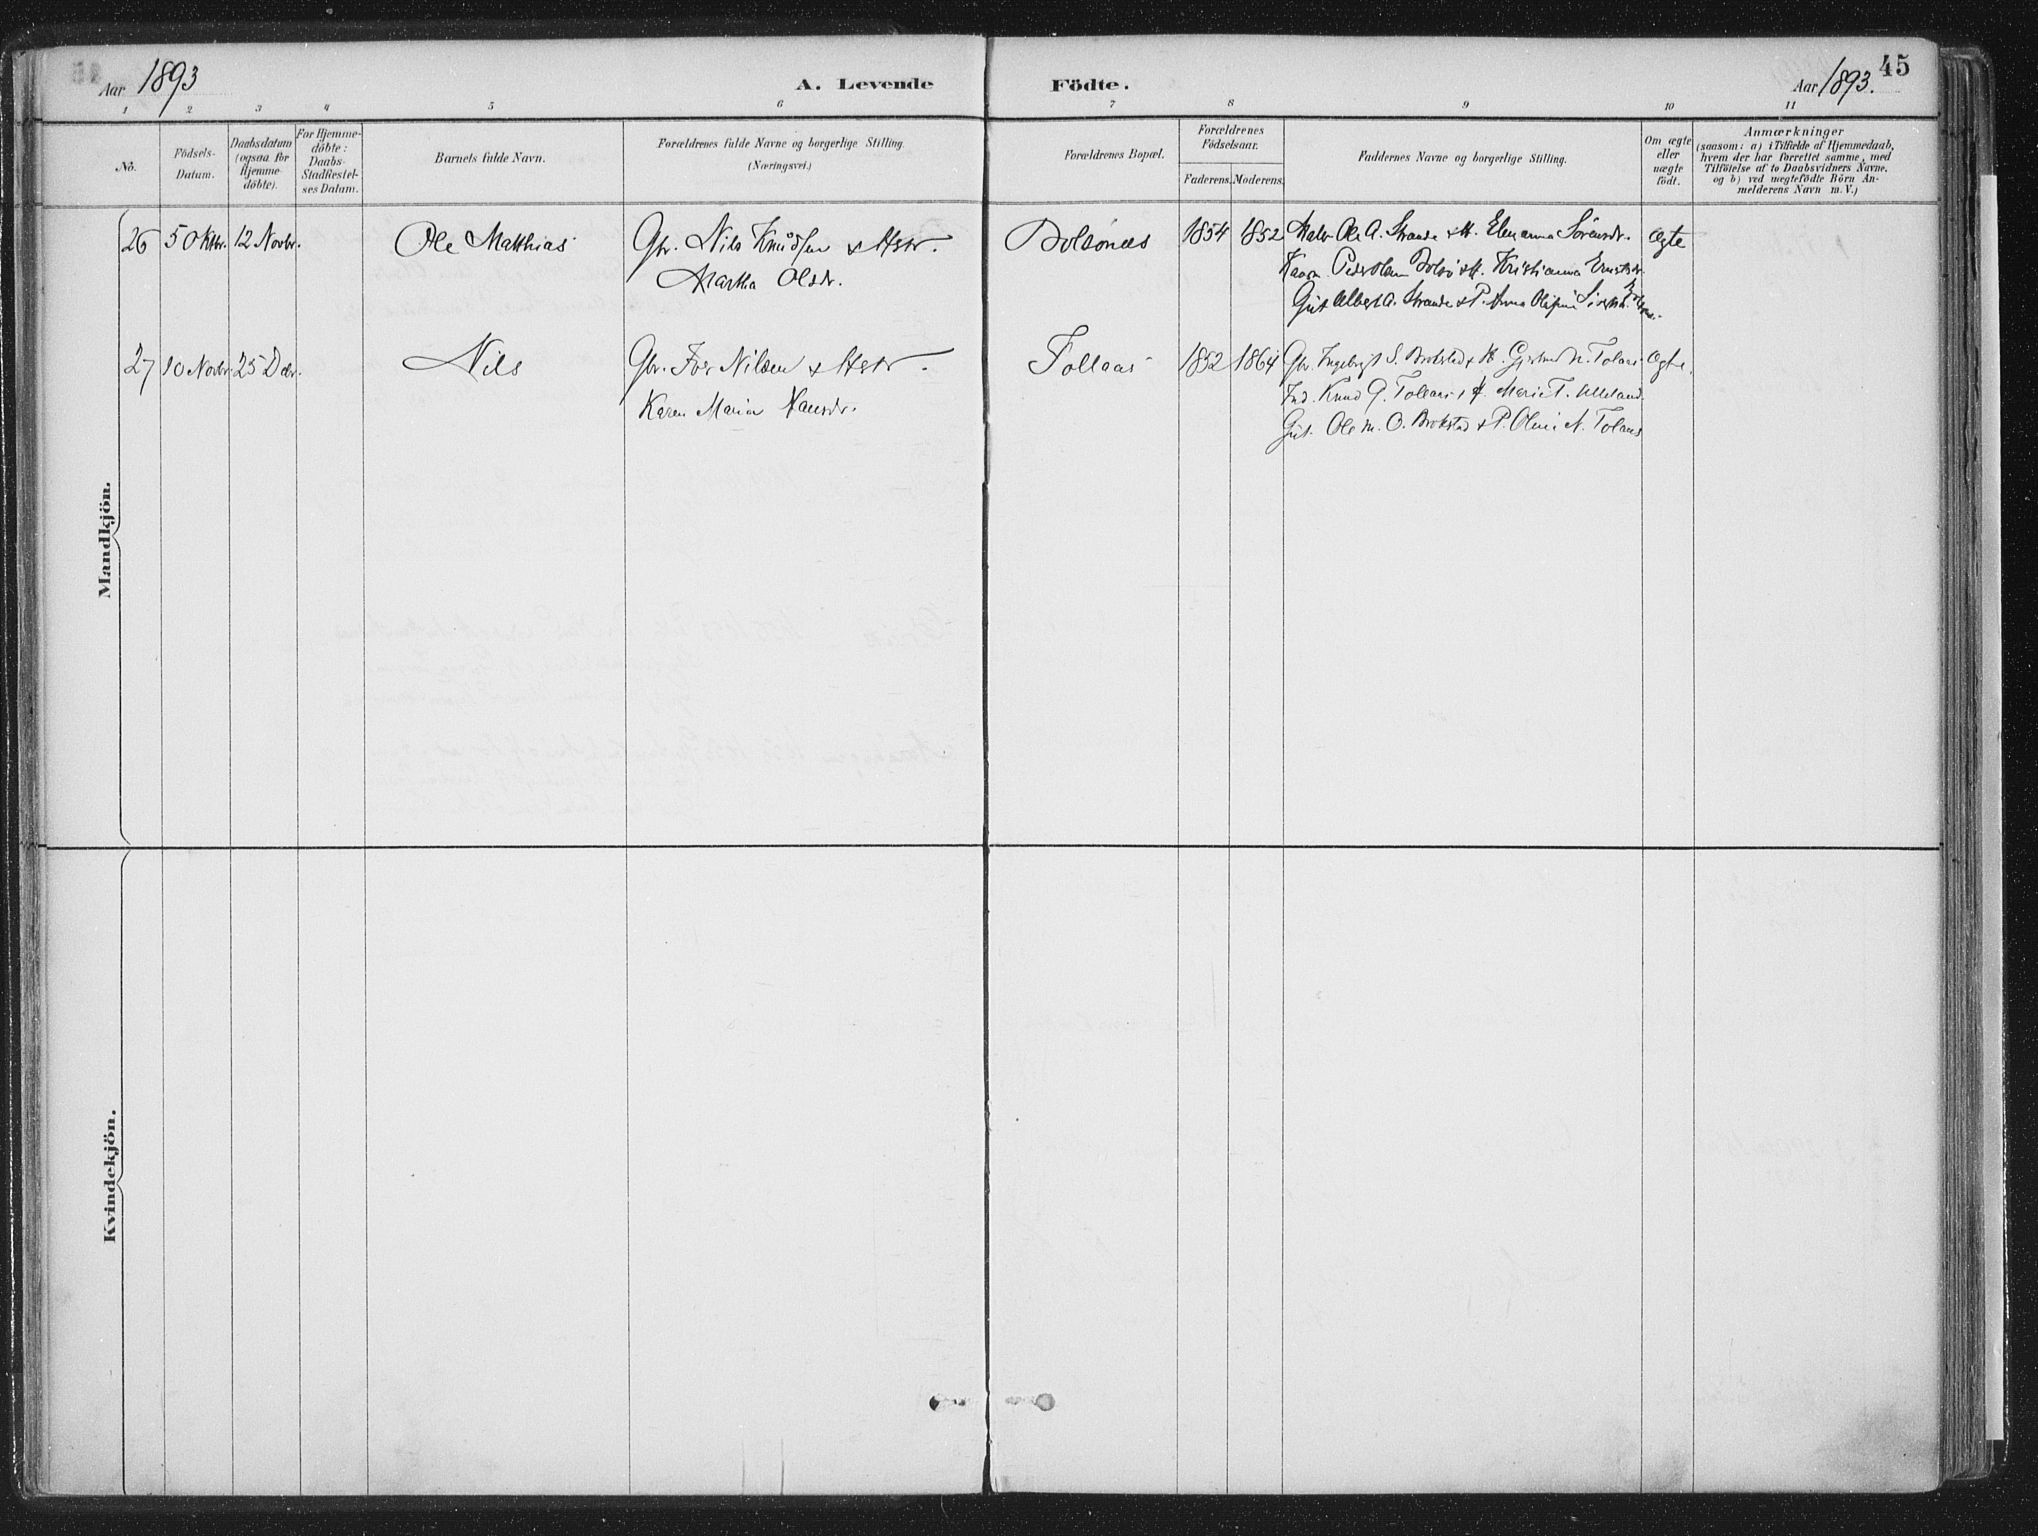 Aar 1893
A. Levende Födte.
Aar 1893.
45
1 2 3 4 5 6 7 8 9 10 11
No.
Födsels-
Datum.
Daabsdatum
(ogsaa for
Hjemme-
döbte).
For Hjemme-
döbte:
Daabs-
Stadfestel-
ses Datum.
Barnets fulde Navn.
Forældrenes fulde Navne og borgerlige Stilling.
(Næringsvei.)
Forældrenes Bopæl.
Forældrenes
Födselsaar.
Faderens. Moderens.
Faddernes Navne og borgerlige Stilling.
Om ægte
eller
uægte
födt.
Anmærkninger
(saasom: a) i Tilfælde af Hjemmedaab,
hvem der har forrettet samme, med
Tilföielse af to Daabsvidners Navne.
og b) ved uægtefödte Börn An-
melderens Navn m. V.)
Mandkjön.
26 5 Oktbr. 12 Novbr. Ole Matthias Gbr. Nils Knudsen & Hstr. Bolsönæs 1854 1852 Ole A. Strande & H. Elen anna Sörensdr. Ægte
Martha Olsdr. Peder Olsen Bolsö & H. Kristianna
Gut Albert A. Strande & P. Anna
27 10 Novbr. 25 Dcbr. Nils Gbr. Iver Nilsen & Hstr. Tollaas 1852 1864 Gbr. Ingebrigt S. Brokstad & H. Gjertrud N. Tolaas Ægte.
Karen Maria Hansdr. Ind. Knud Tollaas & H. Marie T.
Gut. Ole M. O. Brokstad & P. Oline N. Tolaas
Kvindekjön.